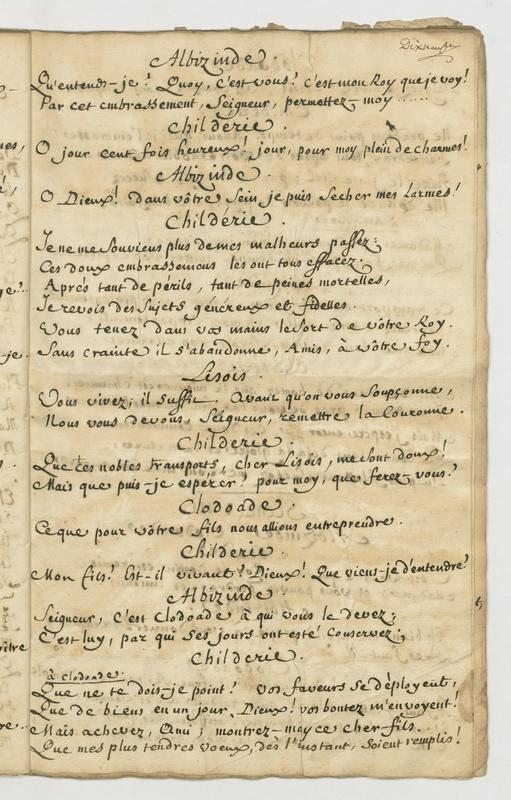 Dixneufe
Albizinde.
Qu'entends-je? Quoy, C'est vous! c'est mon Roy que je voy!
Par cet embrassement, Seigneur, permettez-moy ......
Childéric.
O jour cent fois heureux! jour, pour moy plein de charmes!
Albizinde.
O Dieux! dans vôtre Sein je puis Secher mes Larmes!
Childéric.
Je ne me Souviens plus de mes malheurs passez;
Ces doux embrassemens les ont tous effacez.
Aprés tant de périls, tant de peines mortelles,
Je revois des Sujets généreux et fidelles.
Vous tenez dans vos mains le Sort de vôtre Roy.
Sans crainte il s'abandonne, Amis, à vôtre foy.
Lisois.
Vous vivez; il Suffit. Avant qu'on vous Soupçonne,
Nous vous devons, Seigneur, remettre la Couronne.
Childeric.
Que ces nobles transports, cher Lisois, me sont doux!
Mais que puis-je espérer? pour moy, que ferez-vous?
Clodoade.
Ce que pour vôtre fils nous allions entreprendre.
Childeric.
Mon fils! Est-il vivant? Dieux! Que viens-je d'entendre?
Albizinde.
Seigneur, C'est Clodoade à qui vous le devez;
C'est luy, par qui Ses jours ont esté Conservez;
Childeric.
à Clodoade.
Que ne te dois-je point! vos faveurs Se déployent,
Que de biens en un jour, Dieux! vos boutez m'envoyent!
Mais achevez, Ami; montrez-moy ce cher fils.
Que mes plus tendres voeux, dés l'instant, Soient remplis!